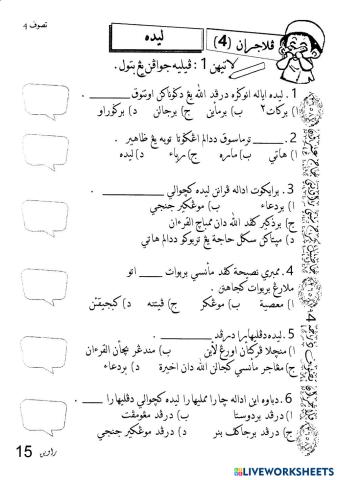 تصوف 4
ڤلاجرن (4) ليده
لاتيهن 1 : ڤيليه جواڤن يڠ بتول.
1. ليده اياله انوݢره درڤد الله يڠ دݢوناکن اونتوق ______ .
ا) برکات٢ ب) برماين ج) برجالن د) برݢوراو
2. ______ ترماسوق ددالم اڠݢوتا توبه يڠ ظاهير .
ا) هاتي ب) ماره ج) رياء د) ليده
3. برايکوت اداله ڤرانن ليده کچوالي ______ .
ا) بردعاء ب) موڠکير جنجي
ج) برذکير کڤد الله دان ممباچ القرءان
د) مڽاتاکن سݢل حاجة يڠ تربوکو ددالم هاتي
4. ممبري نصيحة کڤد مأنسي بربوات ____ اتو
ملارڠ بربوات کجاهتن .
ا) معصية ب) موڠکر ج) فيتنه د) کبجيقکن
5. ليده دڤليهارا درڤد ______ .
ا) منچلا ڤرکتاءن اورڠ لاٴين ب) مندڠر بچاٴن القرءان
ج) مڠاجر مأنسي کجالن الله دان اخيرة د) بردعاء
6. دباوه اين اداله چارا مميليهارا ليده کچوالي دڤليهارا ____ .
ا) درڤد بردوستا ب) درڤد مڠومڤت
ج) درڤد برچاکڤ بنر د) درڤد موڠکير جنجي
15
LIVEWORKSHEETS